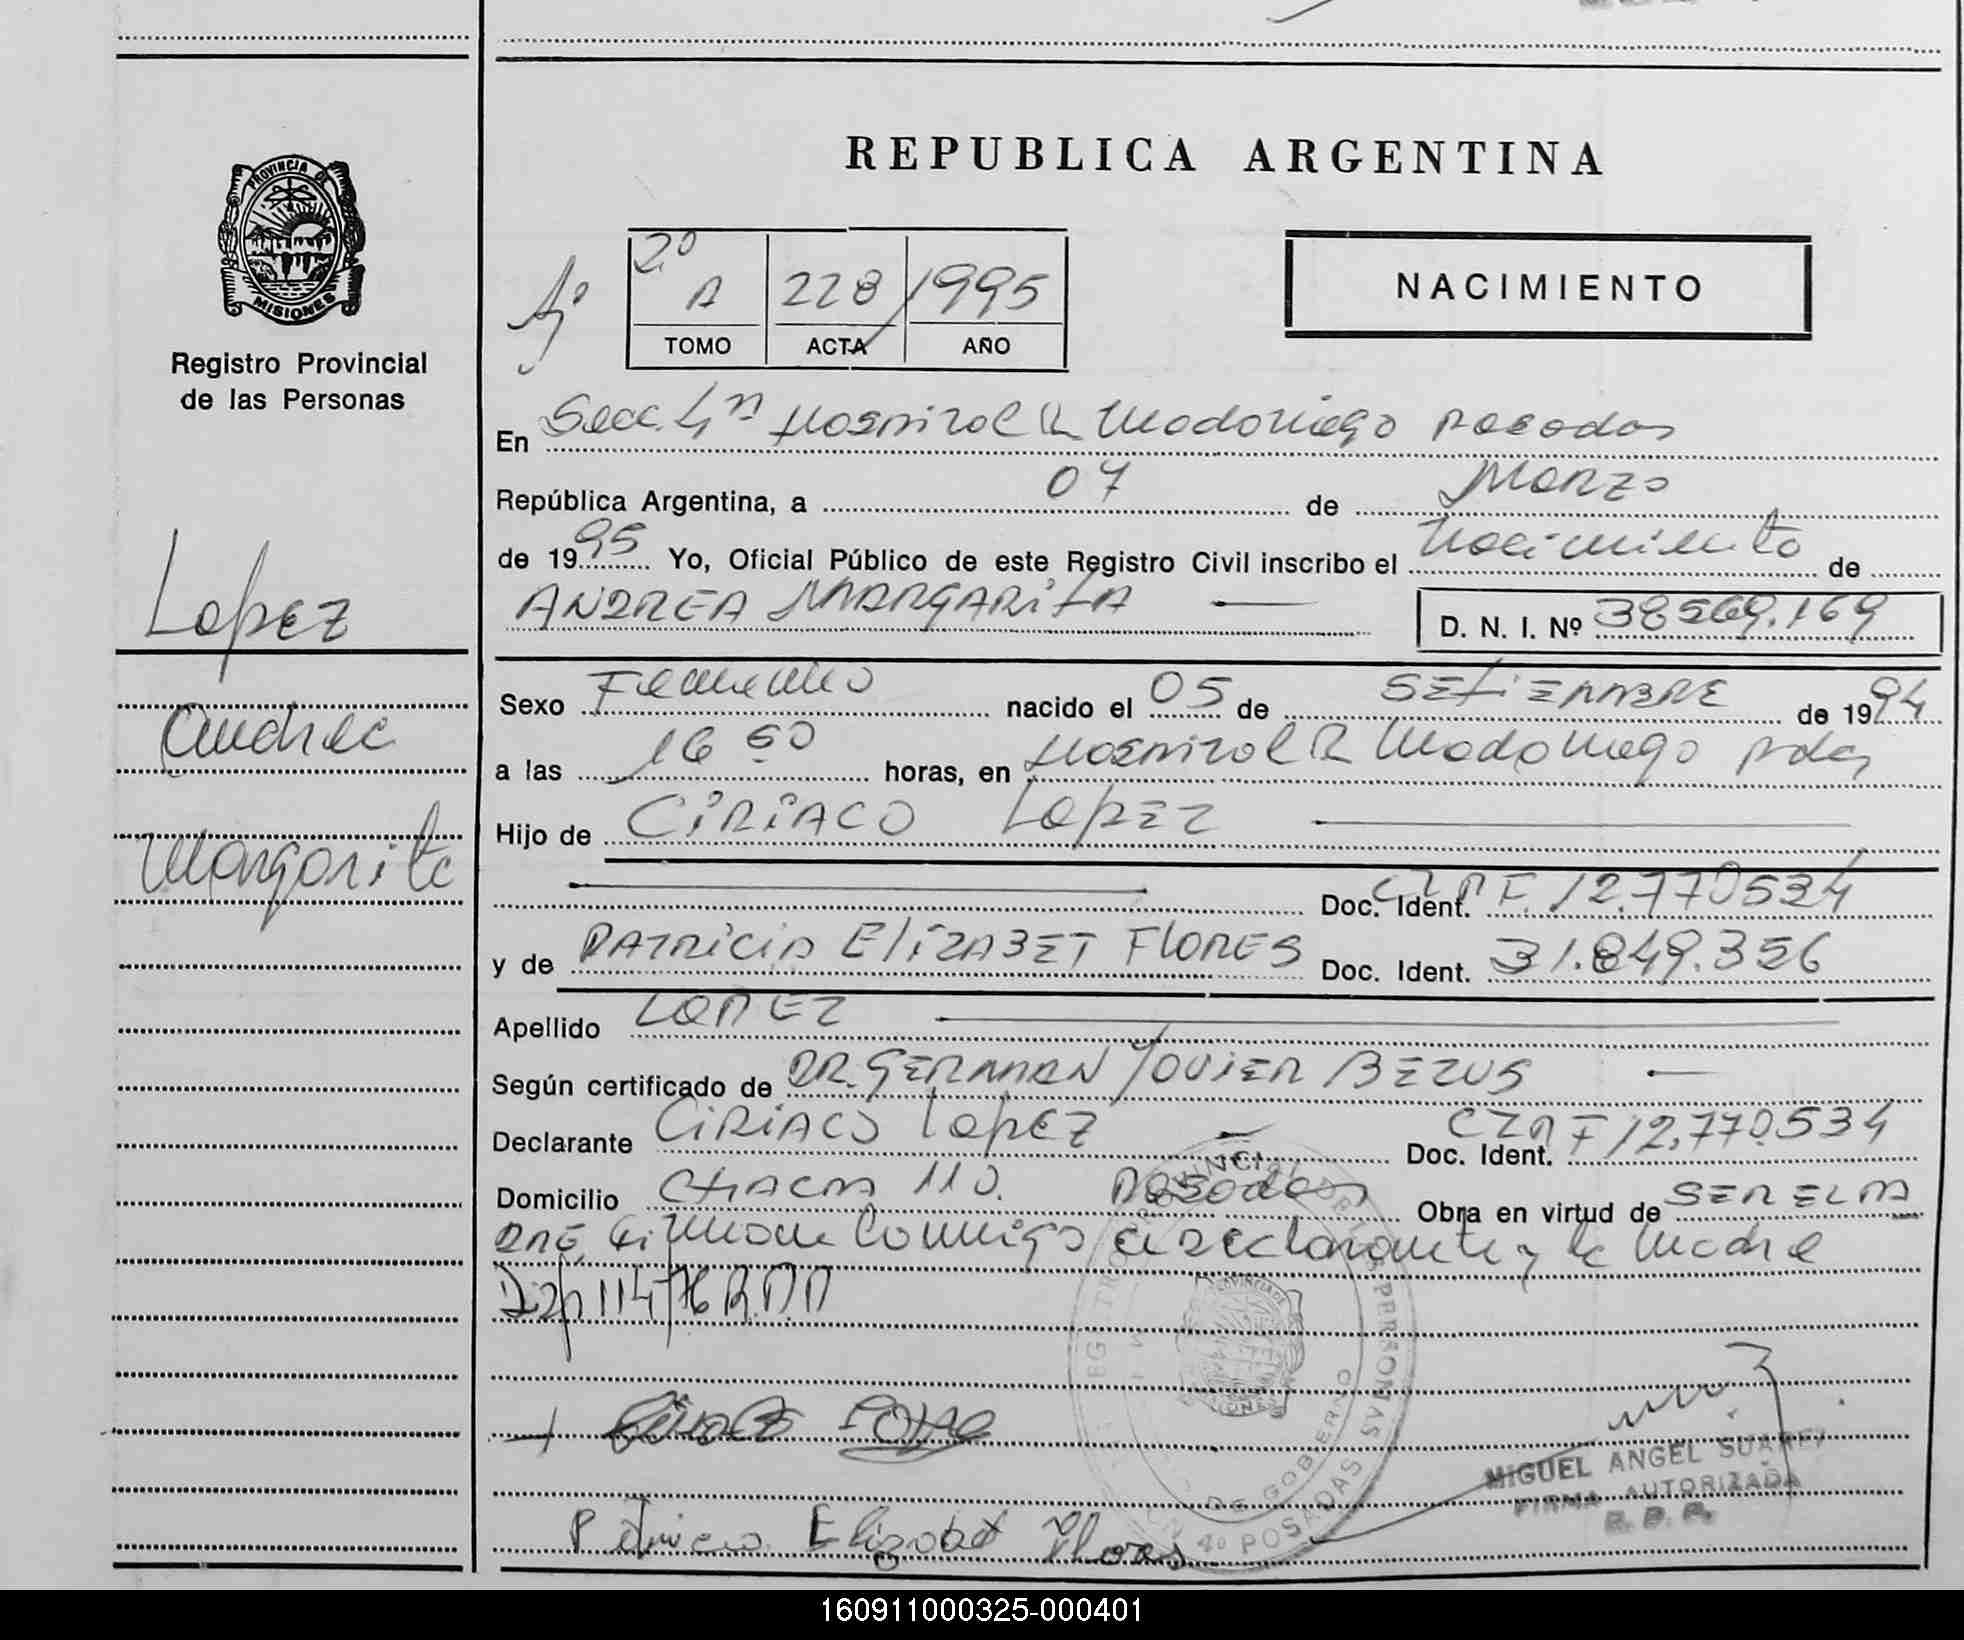 REPUBLICA ARGENTINA
PROVINCIA DE MISIONES
Registro Provincial
de las Personas
2º
A 228 1995
TOMO ACTA AÑO
NACIMIENTO
En Secc. 4ta Hospital R Madariaga Posadas
República Argentina, a 07 de Marzo
de 1995 Yo, Oficial Público de este Registro Civil inscribo el Nacimiento de
ANDREA MARGARITA — D. N. I. Nº 38569.169
Lopez
Andrea
Margarita
Sexo Femenino nacido el 05 de SETIEMBRE de 1994
a las 16 50 horas, en Hospital R Madariaga Pdas
Hijo de CIRIACO LOPEZ
Doc. Ident. F. 12.770534
y de PATRICIA ELIZABET FLORES Doc. Ident. 31.849.356
Apellido LOPEZ
Según certificado de DR. GERMAN JAVIER BEZUS —
Declarante CIRIACO LOPEZ — Doc. Ident. F 12.770.534
Domicilio CHACRA 110. Posadas Obra en virtud de SER EL PA
DRE, Firman Conmigo el declarante y la Madre
114/76
Elizabet Flores
DE GOBERNO
4º POSADAS
MIGUEL ANGEL SUAREZ
FIRMA AUTORIZADA
R. P. P.
160911000325-000401